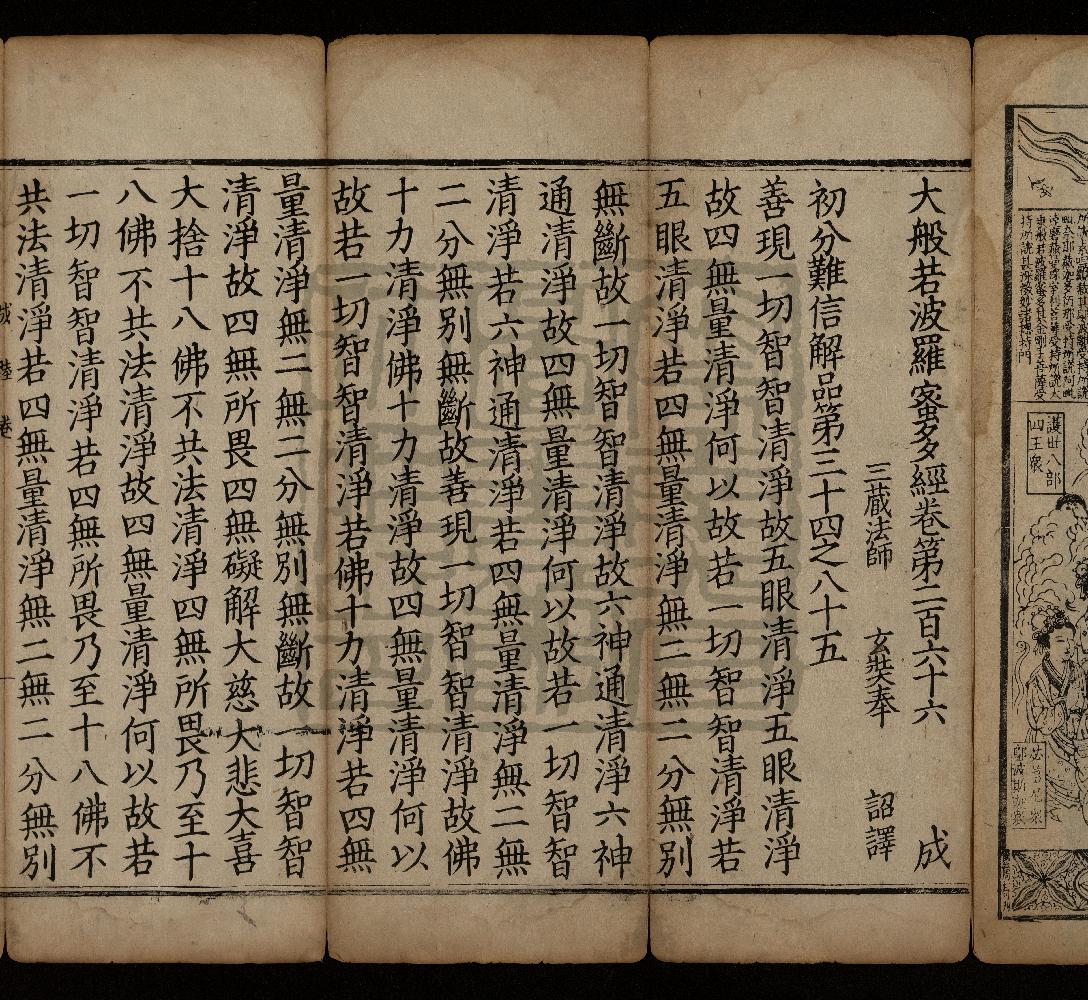 大般若波羅蜜多經卷第二百六十六 成
三蔵法師 玄奘奉 詔譯
初分難信解品第三十四之八十五
善現一切智智清淨故五眼清淨五眼清淨
故四無量清淨何以故若一切智智清淨若
五眼清淨若四無量清淨無二無二分無別
無斷故一切智智清淨故六神通清淨六神
通清淨故四無量清淨何以故若一切智智
清淨若六神通清淨若四無量清淨無二無
二分無別無斷故善現一切智智清淨故佛
十力清淨佛十力清淨故四無量清淨何以
故若一切智智清淨若佛十力清淨若四無
量清淨無二無二分無別無斷故一切智智
清淨故四無所畏四無礙解大慈大悲大喜
大捨十八佛不共法清淨四無所畏乃至十
八佛不共法清淨故四無量清淨何以故若
一切智智清淨若四無所畏乃至十八佛不
共法清淨若四無量清淨無二無二分無別
護世八部
四王衆